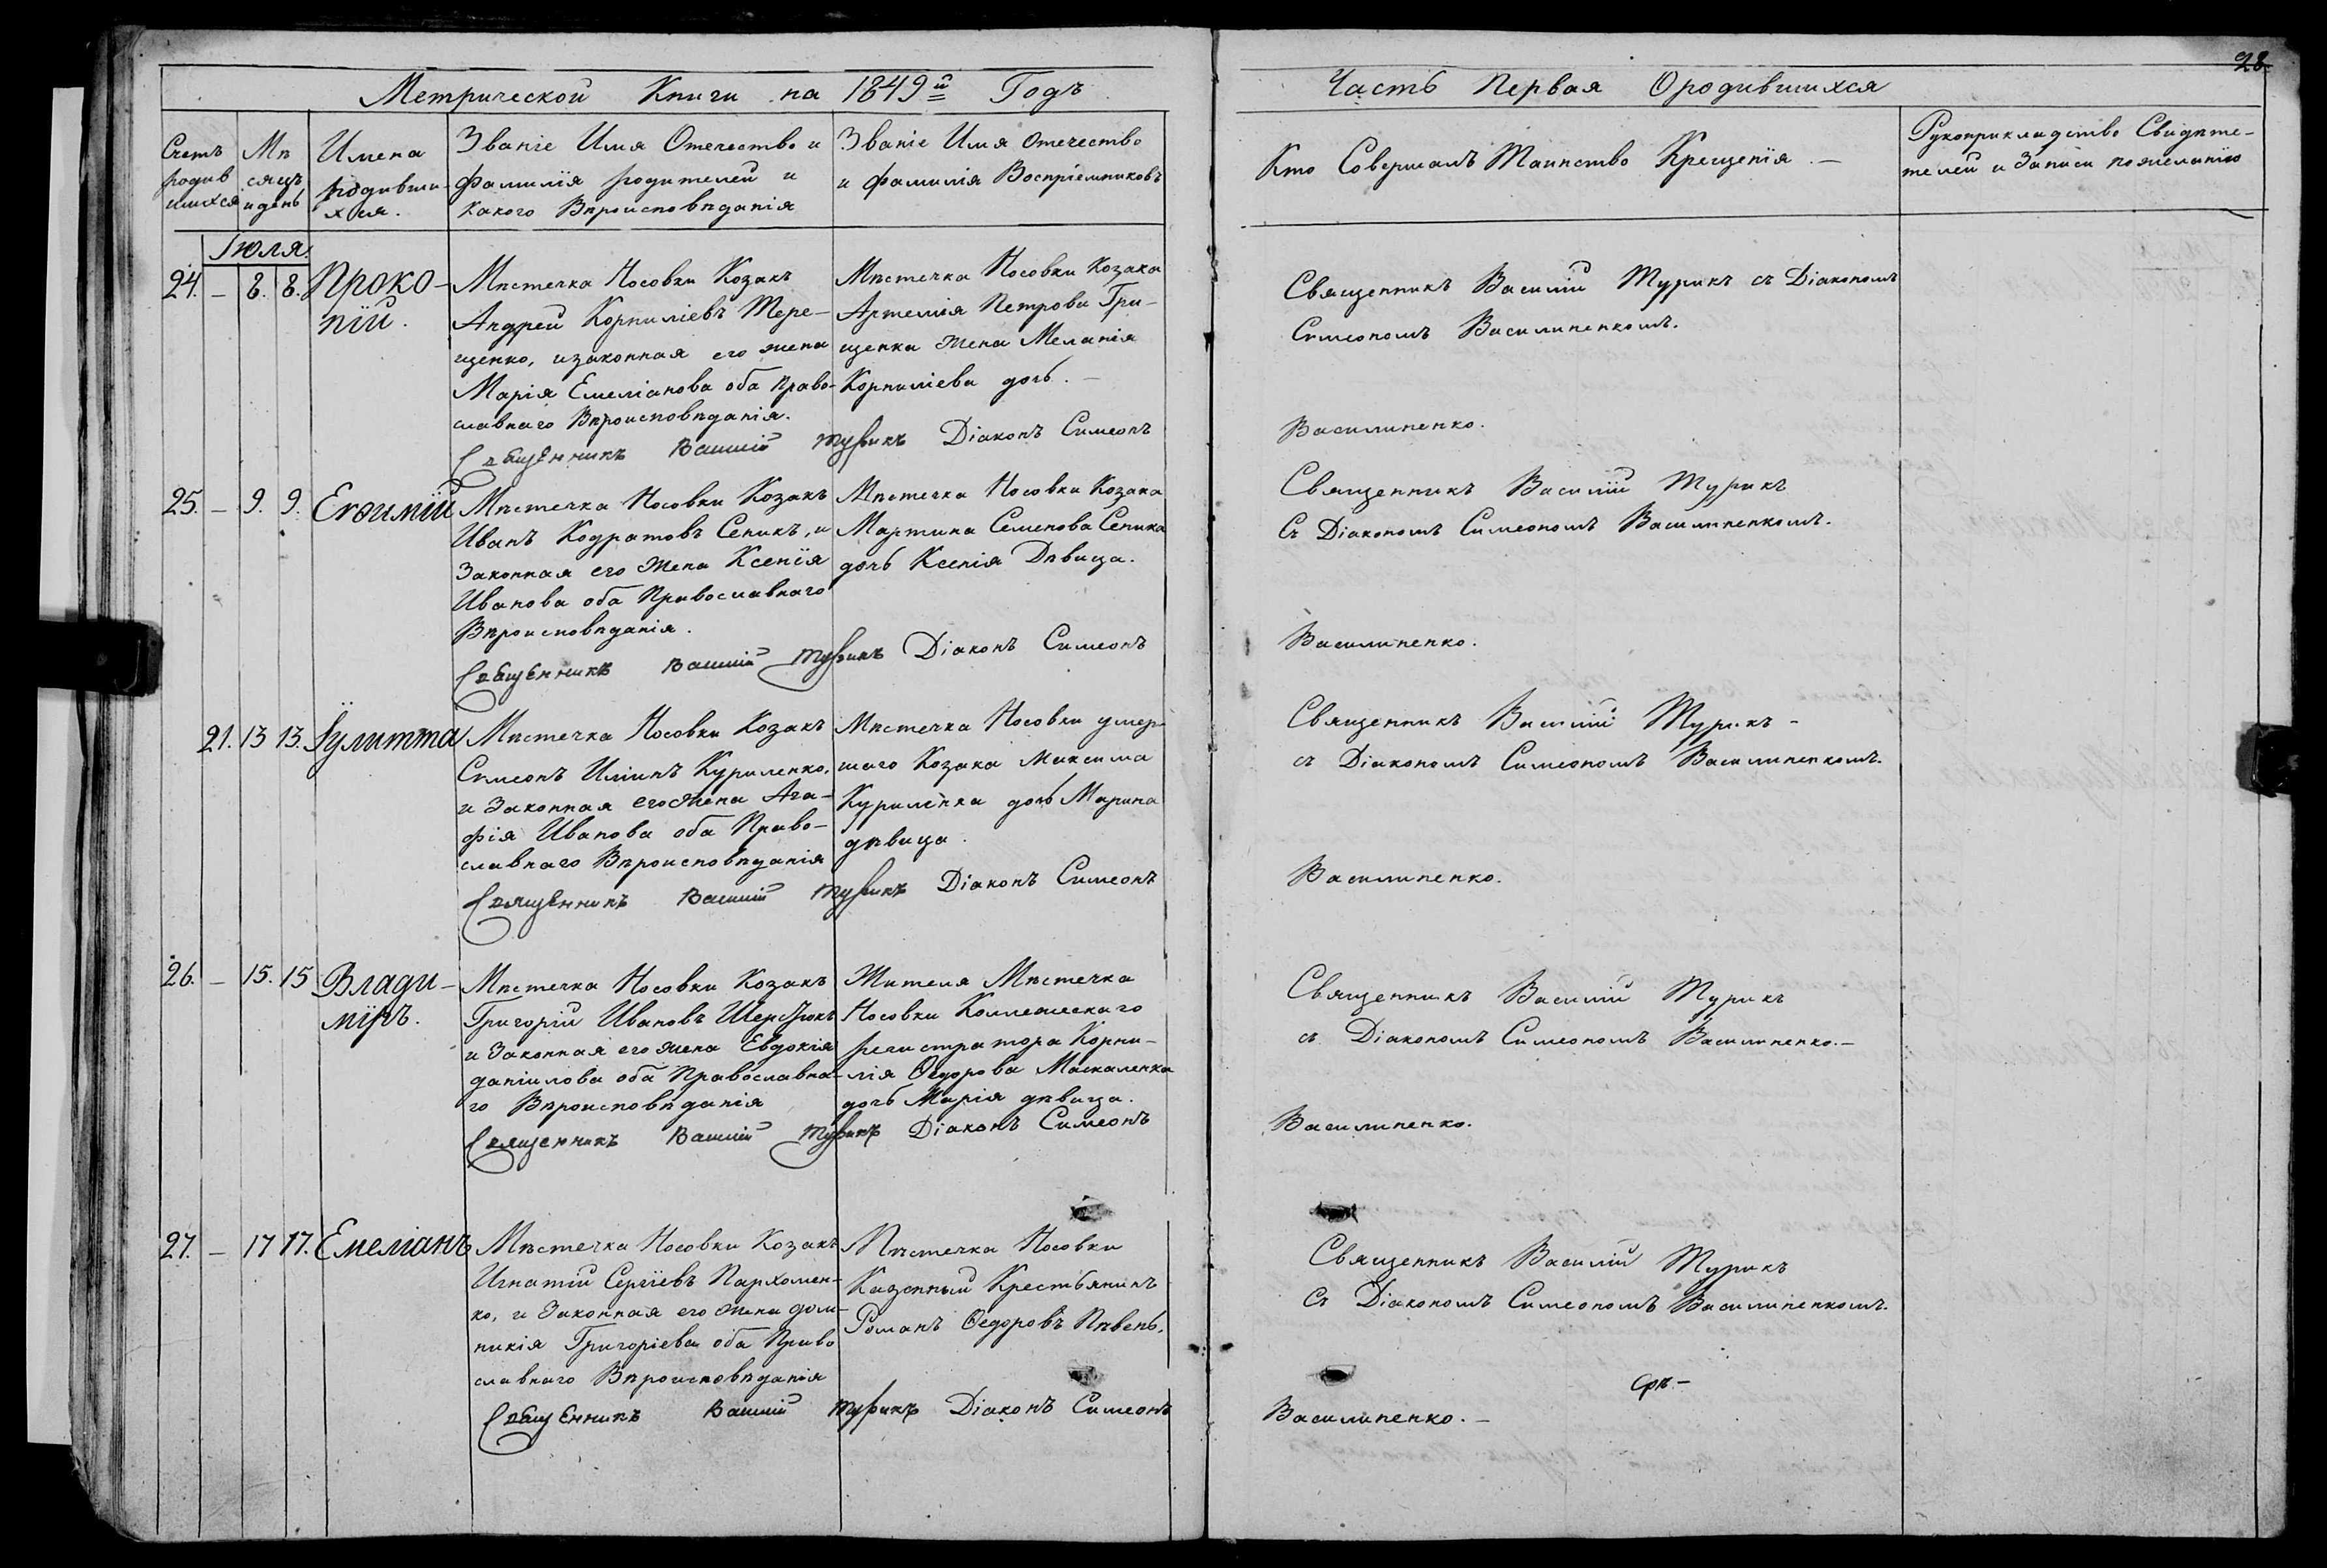 Метрической Книги на 1849й Годъ
Счетъ родив шихся
Мѣ сяцъ и день
Имена родивши- хся.
Званіе Имя Отечество и
Фамилія родителей и
Какого Вѣроисповѣданія
Званіе Имя Отечество
и Фамилія Воспріемниковъ
Іюля.
24. – 8. 8. Проко-
пій.
Мѣстечка Носовки Козакъ
Андрей Корниліевъ Тере-
щенко, изаконная его жена
Марія Емеліанова оба Право-
славнаго Вѣроисповѣданія.
Мѣстечка Носовки Козака
Артемія Петрова Гри-
щенка Жена Меланія
Корниліева дочь. –
Священникъ Василій Турикъ Діаконъ Симеонъ
25. – 9. 9. Евѳимій
Мѣстечка Носовки Козакъ
Иванъ Кодратовъ Сеникъ, и
Законная его Жена Ксенія
Иванова оба Православнаго
Вѣроисповѣданія.
Мѣстечка Носовки Козака
Мартина Семенова Сеника
дочь Ксенія Дѣвица.
Священникъ Василій Турикъ Діаконъ Симеонъ
21. 13 13. Іулитта
Мѣстечка Носовки Козакъ
Симеонъ Илiинъ Куриленко,
и Законная его Жена Ага-
фія Иванова оба Право-
славнаго Вѣроисповѣданія
Мѣстечка Носовки умер-
шаго Козака Максима
Куриленка дочь Марина
дѣвица.
Священникъ Василій Турикъ Діаконъ Симеонъ
26. – 15. 15 Влади-
міръ.
Мѣстечка Носовки Козакъ
Григорій Ивановъ Шерстюкъ
и Законная его жена Евдокія
даніилова оба Православна-
го Вѣроисповѣданія
Жителя Мѣстечка
Носовки Коллежскаго
регистратора Корни-
лія Ѳедорова Маскаленка
дочь Марія дѣвица.
Священникъ Василій Турикъ Діаконъ Симеонъ
27. – 17 17. Емеліанъ
Мѣстечка Носовки Козакъ
Игнатій Сергіевъ Пархомен-
ко, и Законная его Жена дом-
никія Григоріева оба Право
славнаго Вѣроисповѣданія
Мѣстечка Носовки
Казенный Крестьянинъ
Романъ Ѳедоровъ Пѣвень.
Священникъ Василій Турикъ Діаконъ Симеонъ
28
Часть Первая Ородившихся
Кто Совершалъ Таинство Крещенія. –
Рукоприкладство Свидѣте-
телей и Записи пожеланію
Священникъ Василій Турикъ съ Діакономъ
Симеономъ Василиненкомъ.
Василиненко.
Священникъ Василій Турикъ
Съ Діакономъ Симеономъ Василиненкомъ.
Василиненко.
Священникъ Василій Турикъ –
съ Діакономъ Симеономъ Василиненкомъ.
Василиненко.
Священникъ Василій Турикъ
съ Діакономъ Симеономъ Василиненко. –
Василиненко.
Священникъ Василій Турикъ
Съ Діакономъ Симеономъ Василиненкомъ.
Василиненко. –